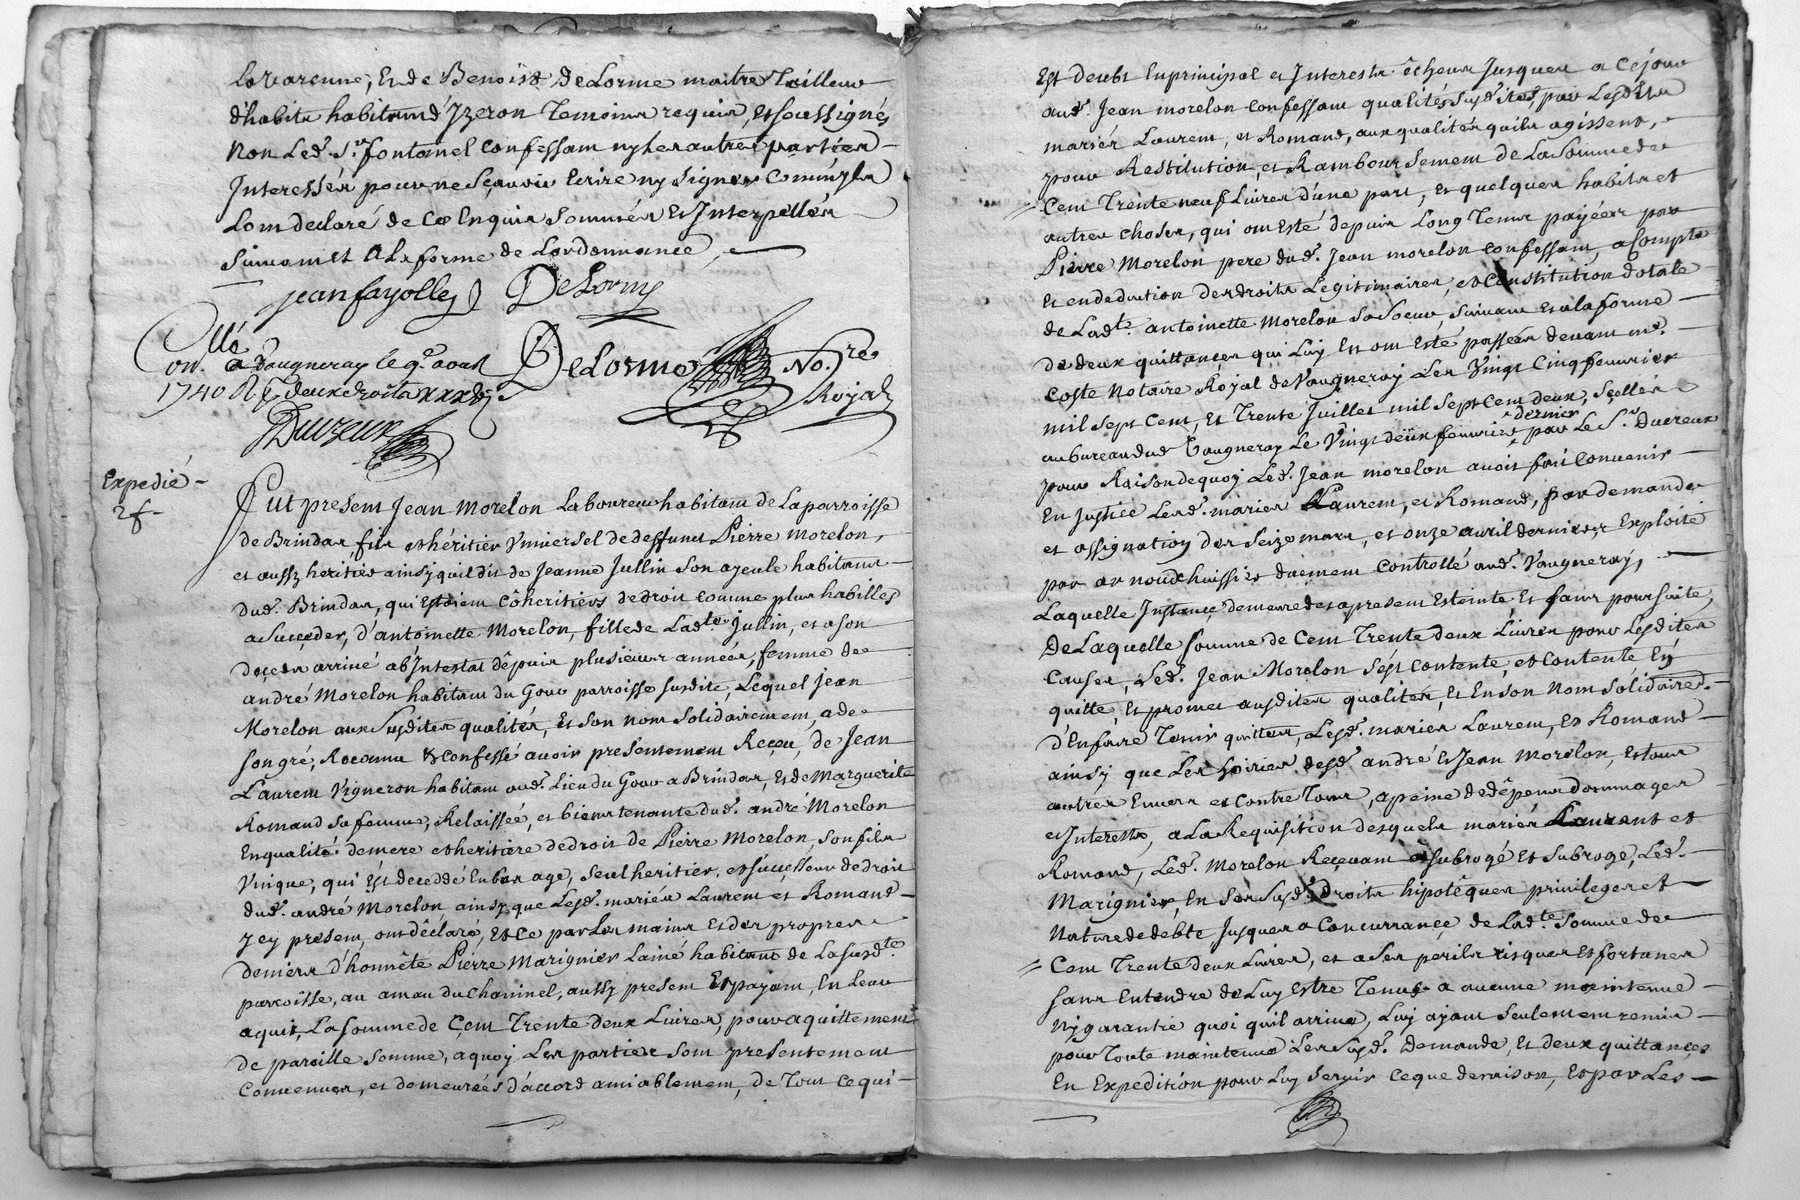 Lavarenne, Et de Benoist DeLorme maitre Tailleur
d'habits habitand d'Yzeron Temoins requis, et soussignés
Non Led. Sr. fontanel confessant ny les autres parties
Interessés pour ne sçavoir Ecrire ny signer Comm'ils
Lont declaré de ce Enquis Sommés Et Interpellés
suivant et A la forme de Lordonnance,
jean fayolle DeLorme
Con.llé a Vaugneray le 9e aoust
1740 R deux droits
DeLorme No.re Royal
Ducreux
Expedié
2 f
Fut present Jean Morelon Laboureur habitant de La parroisse
de Brindas, fils et héritier Vniversel de deffunct Pierre Morelon,
et aussy heritier ainsy quil dit de Jeanne Jullin son ayeule habitants
dud. Brindas, qui Estoient côheritiers de droit comme plus habilles
a succeder, d'antoinette Morelon, fille de Ladte. Jullin, et a son
deçeds arrivé ab'Intestat dépuis plusieurs années, femme de
andré Morelon habitant du Gour parroisse susdite, Lequel Jean
Morelon aux susdites qualités, et son nom solidairement, a de
son gré, Reconnu & confessé avoir presentement Reçeu, de Jean
Laurent Vigneron habitant aud. Lieu du Gour a Brindas, Et de Marguerite
Romand sa femme, Relaissée, et bien tenante dud. andré Morelon
En qualité de mere et heritiere de droit de Pierre Morelon, son fils
Vnique, qui Est decedé En bas age, seul heritier, et successeur de droit
dud. andré Morelon ainsy que Lesd. mariés Laurent et Romand
Jcy present, ont déclaré, Et ce par Les mains Et des propres
deniers d'honnête Pierre Marignier Lainé habitant de La susdte.
parroisse, au amau du Chaninel, aussy present Et payant, En Leur
aquit, La somme de Cent Trente deux Livres, pour aquittement
de pareille somme, a quoy Les parties sont presentement
Convenues, et demeurées d'accord amiablement, de Tout ce qui
Est deubt En principal et Interests êcheus Jusques a ce jour
aud. Jean morelon confessant qualités susdites, par Lesdits
mariés Laurent, et Romand, aux qualités quils agissent,
pour Restitution, et Rambourssement de La somme de
Cent Trente neuf Livres d'une part, Et quelques habits et
autres choses, qui ont Esté depuis Long Tems payées par
Pierre Morelon pere dud. Jean morelon confessant, a Compte
et en deduction des droits Legitimaires, et Constitution dotale
de Ladte. antoinette Morelon sa soeur, suivant et a la forme
de deux quittances qui Luy En ont Esté passées devant me.
Coste Notaire Royal de Vaugneray Les Vingt Cinq feuvrier
mil sept Cent, Et Trente Juillet mil sept cent deux, scellés
au bureau dud. Vaugneray Le Vingt deux feuvrier dernier par Le Sr. Ducreux
pour Raison de quoy Led. Jean morelon avoit fait convenir
En Justice Lesd. mariés Laurent, et Romand, par demande
et assignation des seize mars, et onze avril derniers, Exploité
par arnoud huissier duement controllé aud. Vaugneray,
Laquelle Instance, demeure des a present Esteinte, Et sans poursuite,
De Laquelle somme de Cent Trente deux Livres pour Lesdites
Causes, Led. Jean Morelon s'est contenté, et contente En
quitte, Et promet ausdites qualités, Et En son nom solidaire
d'En faire Tenir quittes, Lesd. mariés Laurent, Et Romand
ainsy que Les hoiries desd. andré Et Jean Morelon, Et tous
autres Envers et contre Tous, a peine de dépens dommages
et Interests, a La Requisition desquels mariés Laurant et
Romand, Led. Morelon Recevant a subrogé Et subroge, Led.
Marignier, En ses susd. droits hipotêques privileges et
Nature de debte Jusques a Concurrance de Ladte. somme de
Cent Trente deux Livres, et a ses perils risques Et fortunes
sans Entendre de Luy Estre Tenus a aucune maintenue
Ny garantie quoi quil arrive, Luy ayant seulement remis
pour Toute maintenue Les susd. demande, Et deux quittances
En Expedition pour Luy servir ce que de raison, Et par Les